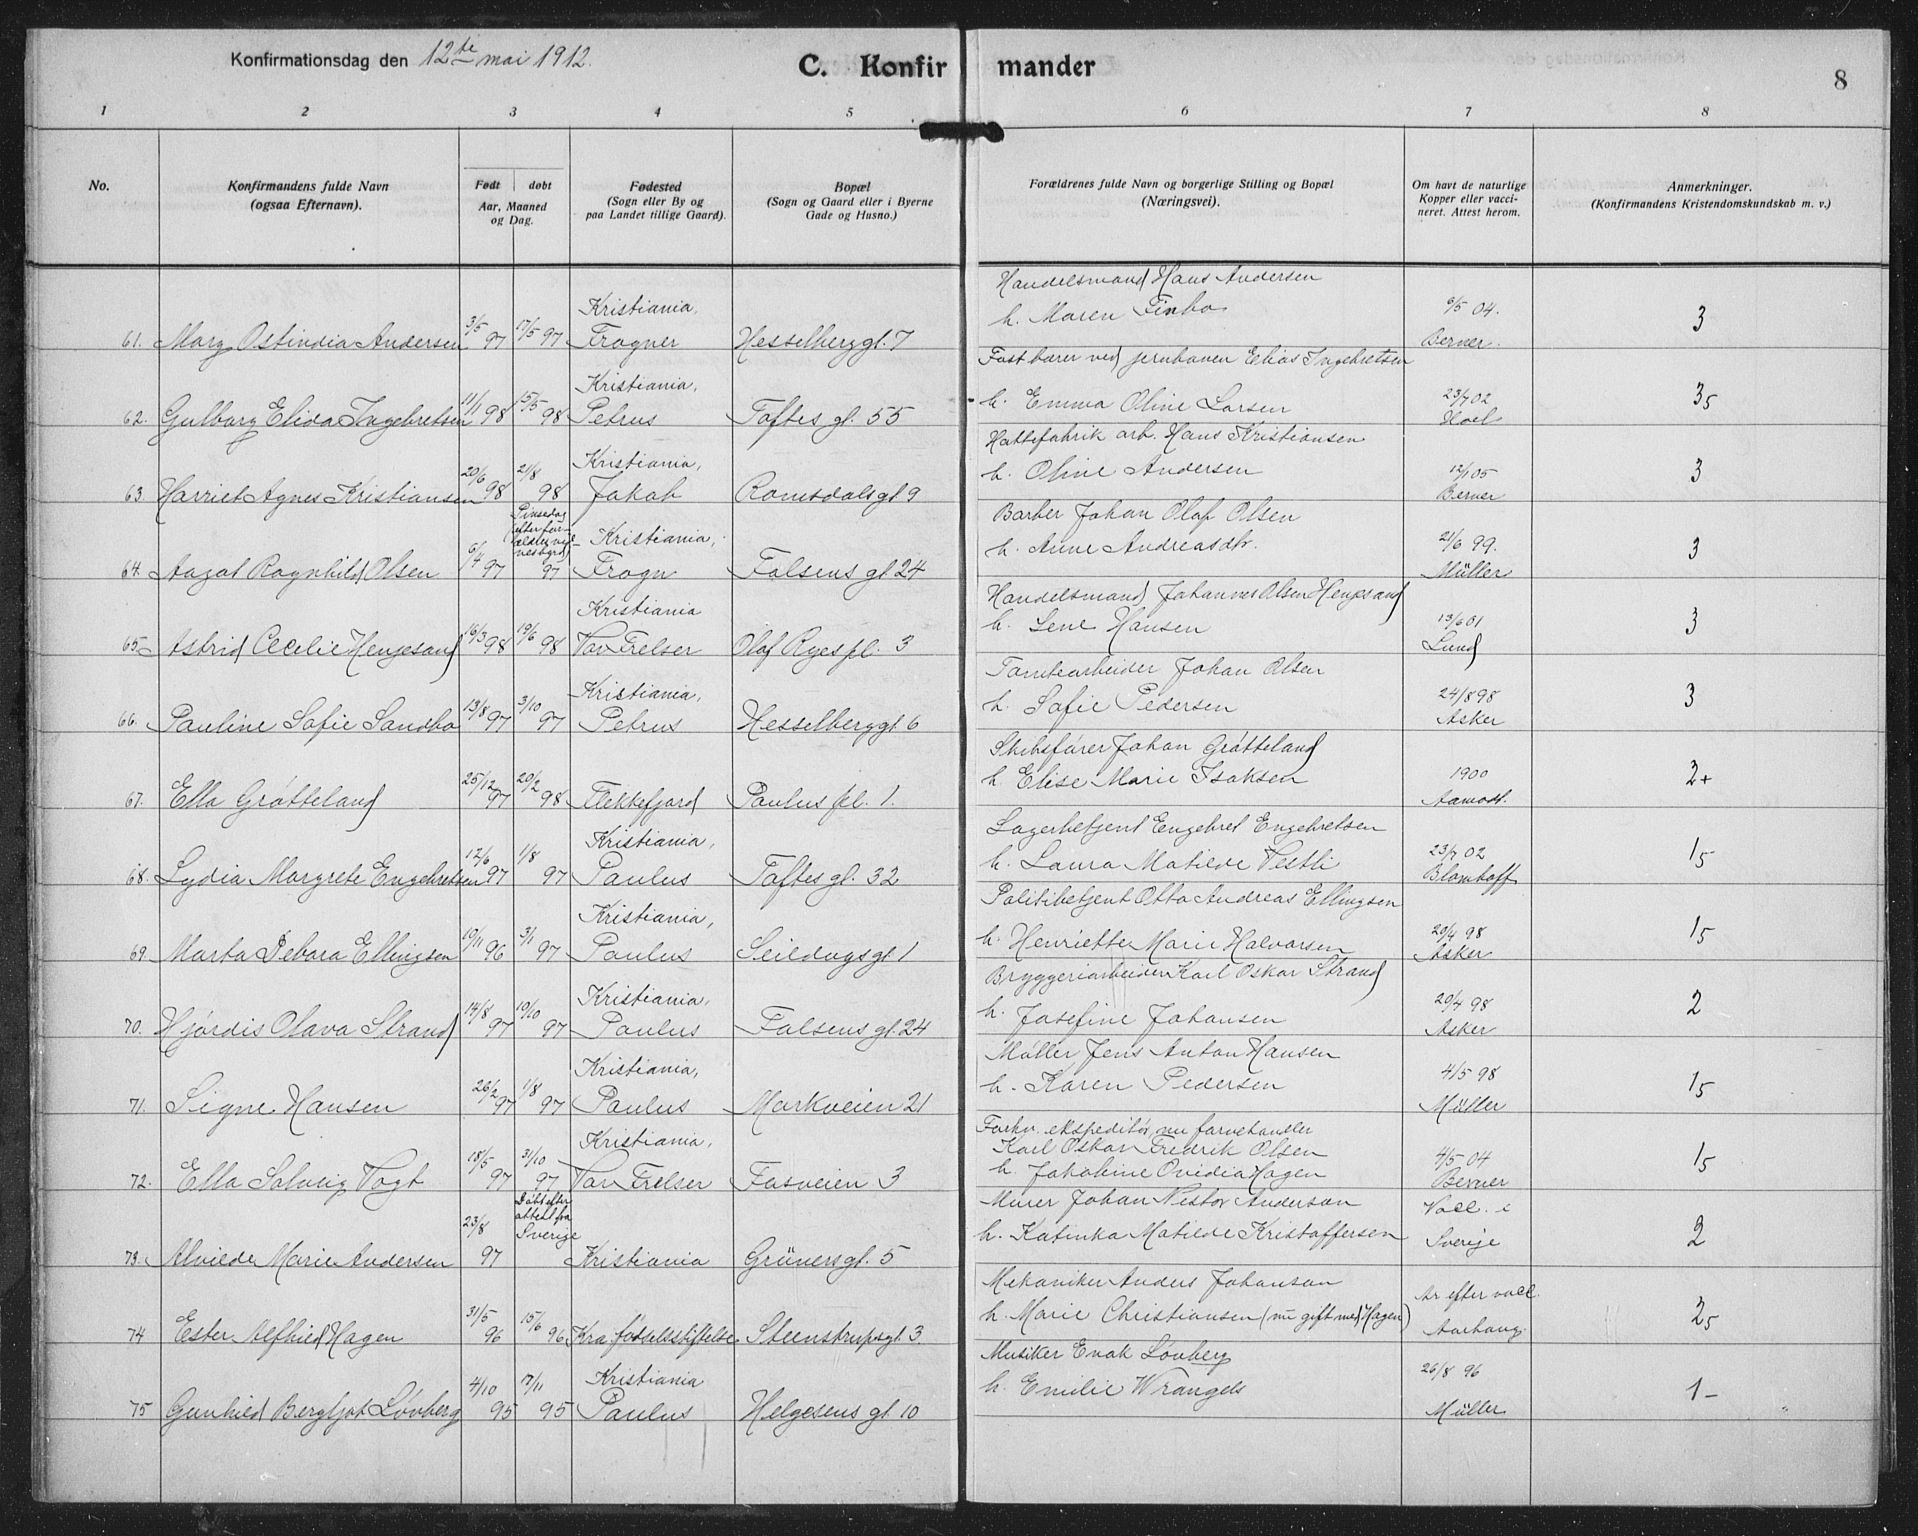 Konfirmationsdag den 12te mai 1912.
C. Konfirmander
8
1 2 3 4 5 6 7 8
No.
Konfirmandens fulde Navn
(ogsaa Efternavn).
Født døbt
Aar, Maaned
og Dag.
Fødested
(Sogn eller By og
paa Landet tillige Gaard).
Bopæl
(Sogn og Gaard eller i Byerne
Gade og Husno.)
Forældrenes fulde Navn og borgerlige Stilling og Bopæl
(Næringsvei).
Om havt de naturlige
Kopper eller vacci-
neret. Attest herom.
Anmerkninger.
(Konfirmandens Kristendomskundskab m. v.)
Handelsmand Hans Andersen
Kristiania, h. Maren Finbo 6/5 04. 3
61. Mary Ostindia Andersen 3/5 97 17/5 97 Frogner Hesselberggt. 7 Berner.
Fast bærer ved jernhaven Elias Ingebretsen
Kristiania, h. Emma Oline Larsen 23/7 02 35
62. Gulborg Elida Ingebretsen 11/11 98 15/5 98 Petrus Toftes gt. 55 Hoel
Hattefabrik arb. Hans Kristiansen
Kristiania, h. Oline Andersen 12/1 05 3
63. Harriet Agnes Kristiansen 20/6 98 21/8 98 Jakob Romsdalsgt 9 Berner
Pinsedag
efter for-
Barber Johan Olaf Olsen
Kristiania, h. Anne Andreasdtr. 21/6 99. 3
64. Aagot Ragnhild Olsen 6/4 97 97 Frogn Falsens gt 24 Müller
Handelsmand Johannes Olsen Hengesand
Kristiania h. Lene Hansen 13/6 01 3
65. Astrid Cecilie Hengesand 16/3 98 19/6 98 Vor Frelser Olaf Ryes pl. 3 Lund
Tomtearbeider Johan Olsen
Kristiania, h. Sofie Pedersen 24/8 98 3
66. Pauline Sofie Sandbo 13/8 97 3/10 97 Petrus Hesselberggt 6 Asker
Skibsfører Johan Grøtteland
h. Elise Marie Isaksen 1900 2+
67. Ella Grøtteland 25/12 97 20/2 98 Flekkefjord Paulus pl. 1. Aamodt.
Lagerbetjent Engebret Engebretsen
Kristiania, h. Laura Matilde Vestli 23/7 02 15
68. Lydia Margrete Engebretsen 12/6 97 1/8 97 Paulus Toftes gt. 32 Blomhoff
Politibetjent Otto Andreas Ellingsen
Kristiania, h. Henriette Marie Halvorsen 20/4 98 15
69. Marta Debora Ellingsen 19/11 96 3/1 97 Paulus Seildugsgt 1 Asker
Bryggeriarbeider Karl Oskar Strand
Kristiania, h. Josefine Johansen 20/4 98 2
70. Hjørdis Olava Strand 14/8 97 10/10 97 Paulus Falsens gt. 24 Asker
Møller Jens Anton Hansen
Kristiania, h. Karen Pedersen 4/5 98 15
71. Signe Hansen 26/2 97 1/8 97 Paulus Markveien 21 Müller
Forhv. ekspeditør, nu farvehandler
Karl Oskar Fredrik Olsen
Kristiania, h. Jakobine Ovidia Hagen 4/5 04 15
72. Ella Solveig Vogt 18/5 97 31/10 97 Vor Frelser Fosveien 3 Berner
Døbt efter
attest fra
Sverige
Murer Johan Nestor Anderson Vacc. i
h. Katinka Matilde Kristoffersen Sverige 2
73. Alvilde Marie Andersen 23/8 97 Kristiania Grünersgt. 5
Mekaniker Anders Johanson Ar efter vacc.
h. Marie Christiansen (nu gift med Hagen) 25
74 Ester Alfhild Hagen 31/5 96 15/6 96 Kra fødselsstiftelse Steenstrupsgt 3
Musiker Enok Løvberg
Kristiania h. Emilie Wrangels 26/8 96 1-
75 Gunhild Bergljot Løvberg 4/10 95 17/11 95 Paulus Helgesens gt 10 Müller